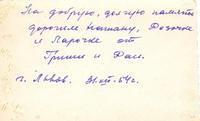 На добрую, долгую память
дорогим Натану, Розочке
и Ларочке от
Гриши и Раи.
г. Львов. 31.XII-54 г.